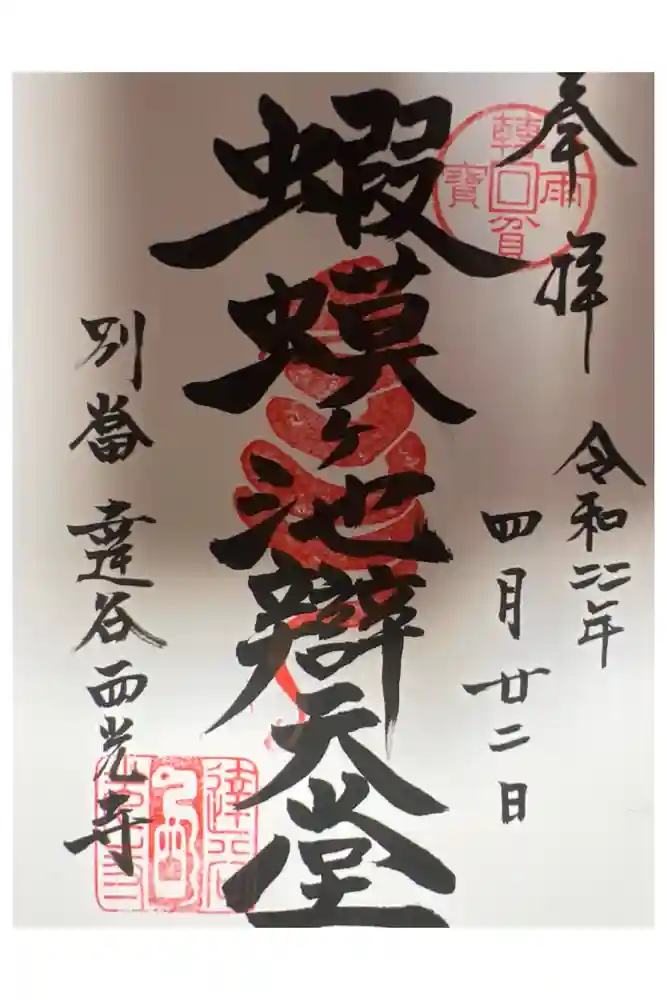 奉拝
令和二二年
四月廿二日
蝦蟆ヶ池辯天堂
別當 達谷西光寺
雨寶